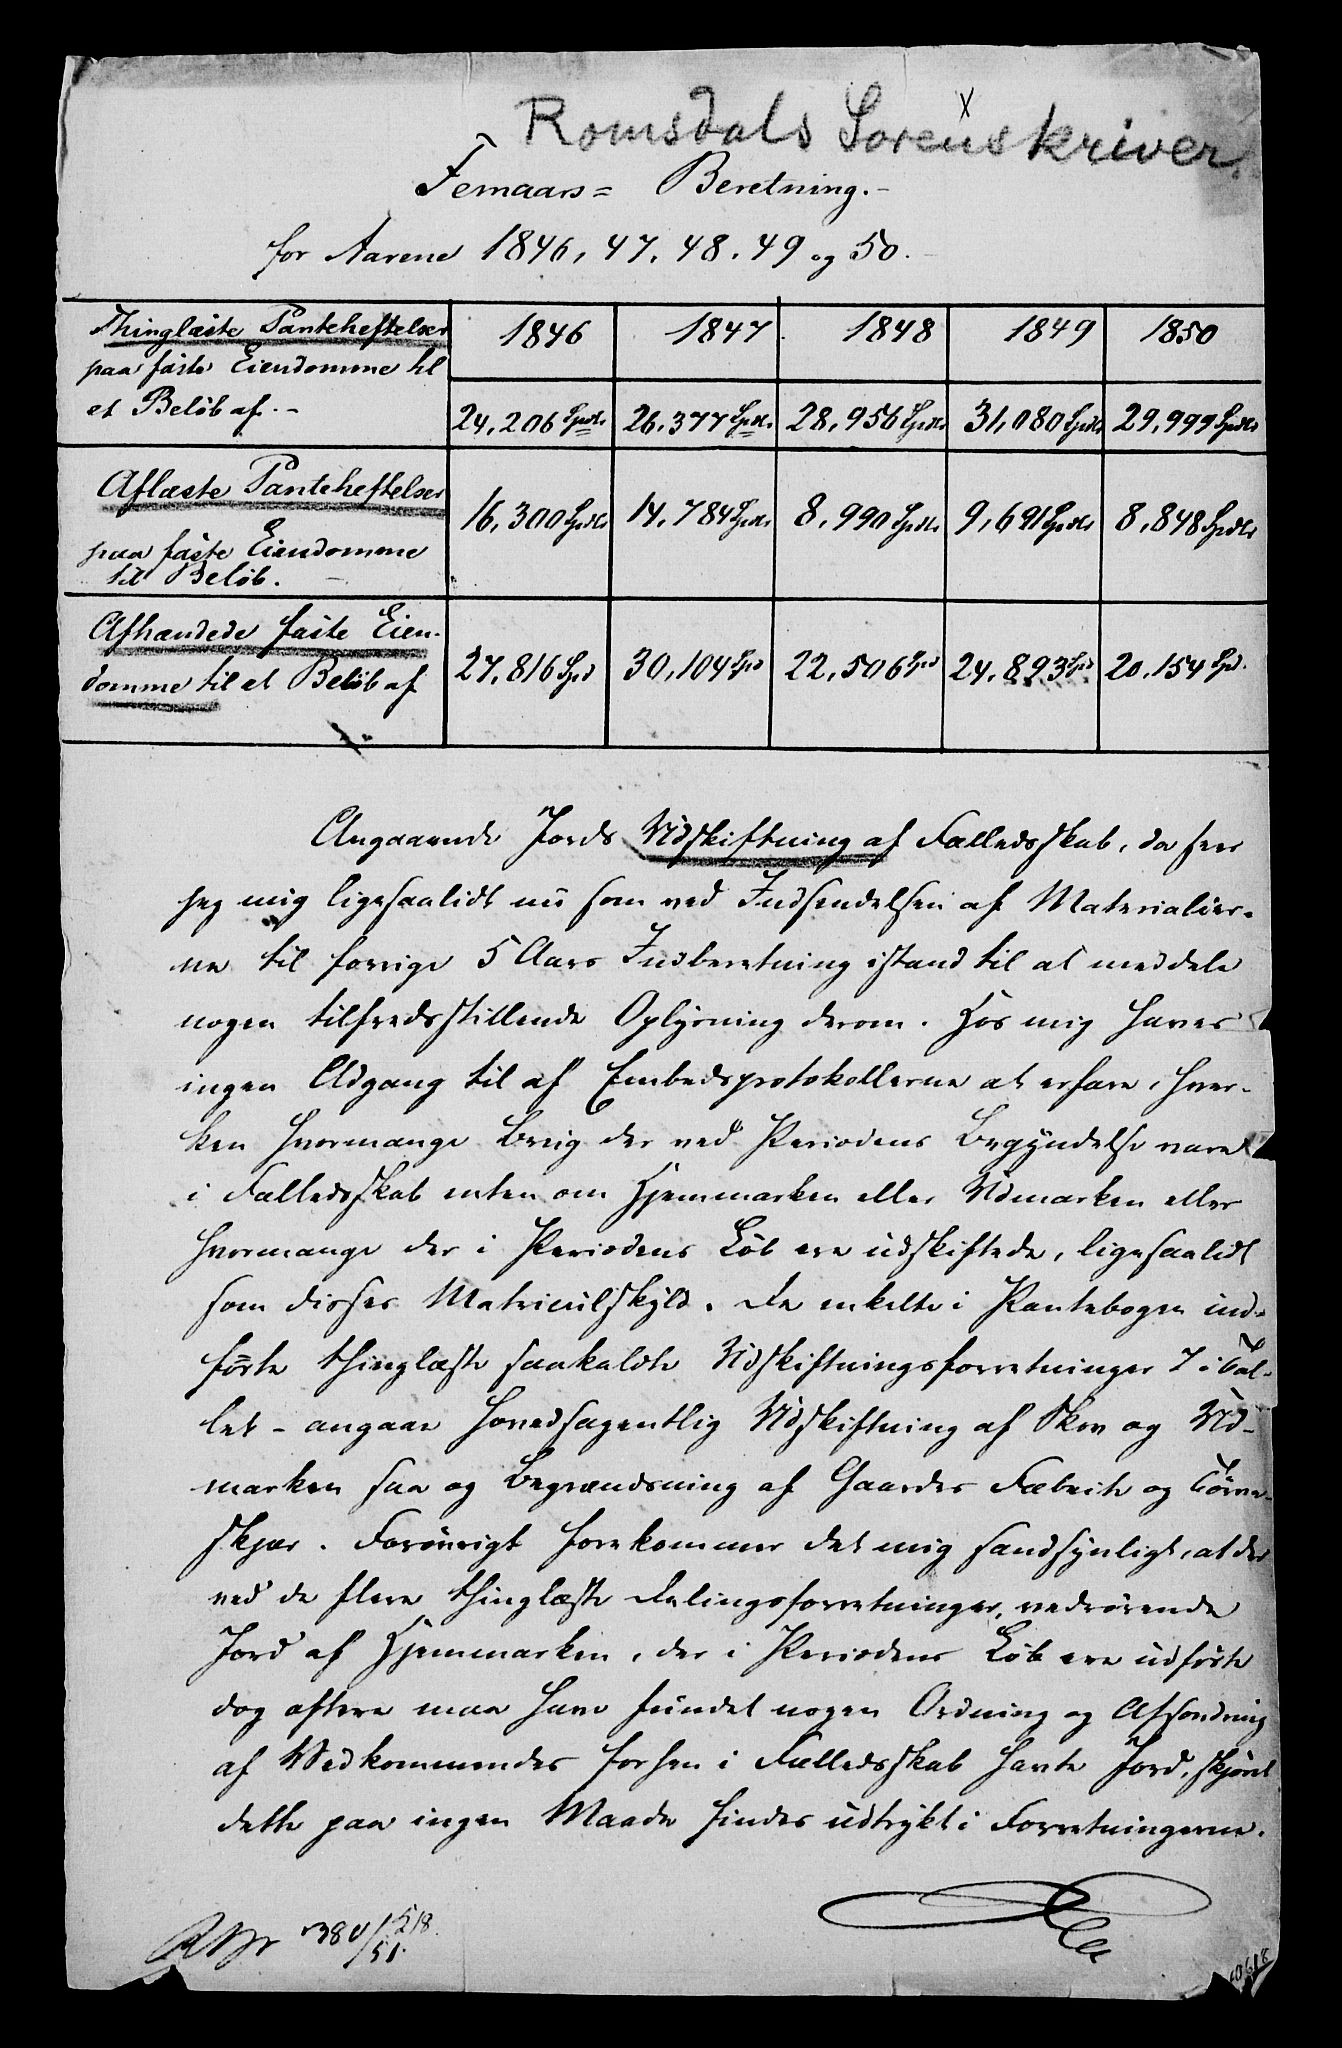 Romsdals Sorenskriver.
Femaars= Beretning.-
for Aarene 1846, 47, 48, 49 og 50.
Thinglæste Pantehefteler 1846 1847 1848 1849 1850
paa faste Eiendomme til
et Beløb af.- 24,206 Spdlr 26,377 Spdlr 28,956 Spdlr 31,080 Spdlr 29,999 Spdlr
Aflæste Panteheftelser
paa faste Eiendomme 16,300 Spdlr 14,784 Spdlr 8,990 Spdlr 9,691 Spdlr 8,848 Spdlr
til Beløb. -
Afhændede faste Eien-
domme til et Beløb af 27,816 Spd 30,104 Spd 22,506 Spd 24,893 Spd 20,154 Spd.
Angaaende Jords Udskiftning af Fælledsskab, da seer
jeg mig ligesaalidt nu som ved Indsendelsen af Materialier-
ne til forrige 5 Aars Indberetning istand til at meddele
nogen tilfredsstillende Oplysning derom. Hos mig haves
ingen Adgang til af Embedsprotokollerne at erfare, hver-
ken hvormange Brug der ved Periodens Begyndelse vare
i Fælledsskab enten om Hjemmarken eller Udmarken eller
hvormange der i Periodens Løb ere udskiftede, ligesaalidt
som disses Matriculskyld. De enkelte i Pantebogen ind-
førte thinglæste saakaldte Udskiftningsforretninger 7 i Tal-
let - angaae hovedsagentlig Udskiftning af Skov og Ud-
marken saa og Begrændsning af Gaardes Fæbeite og Tørve-
skjær. Forøvrigt forekommer det mig sandsynligt, at der
ved de flere thinglæste Delingsforretninger, vedrørende
Jord af Hjemmarken, der i Periodens Løb ere udførte
dog oftere maa have fundet nogen Ordning og Afsondring
af Vedkommendes forhen i Fælledsskab havte Jord, skjønt
dette paa ingen Maade findes udtrykt i Forretningerne.
380/51